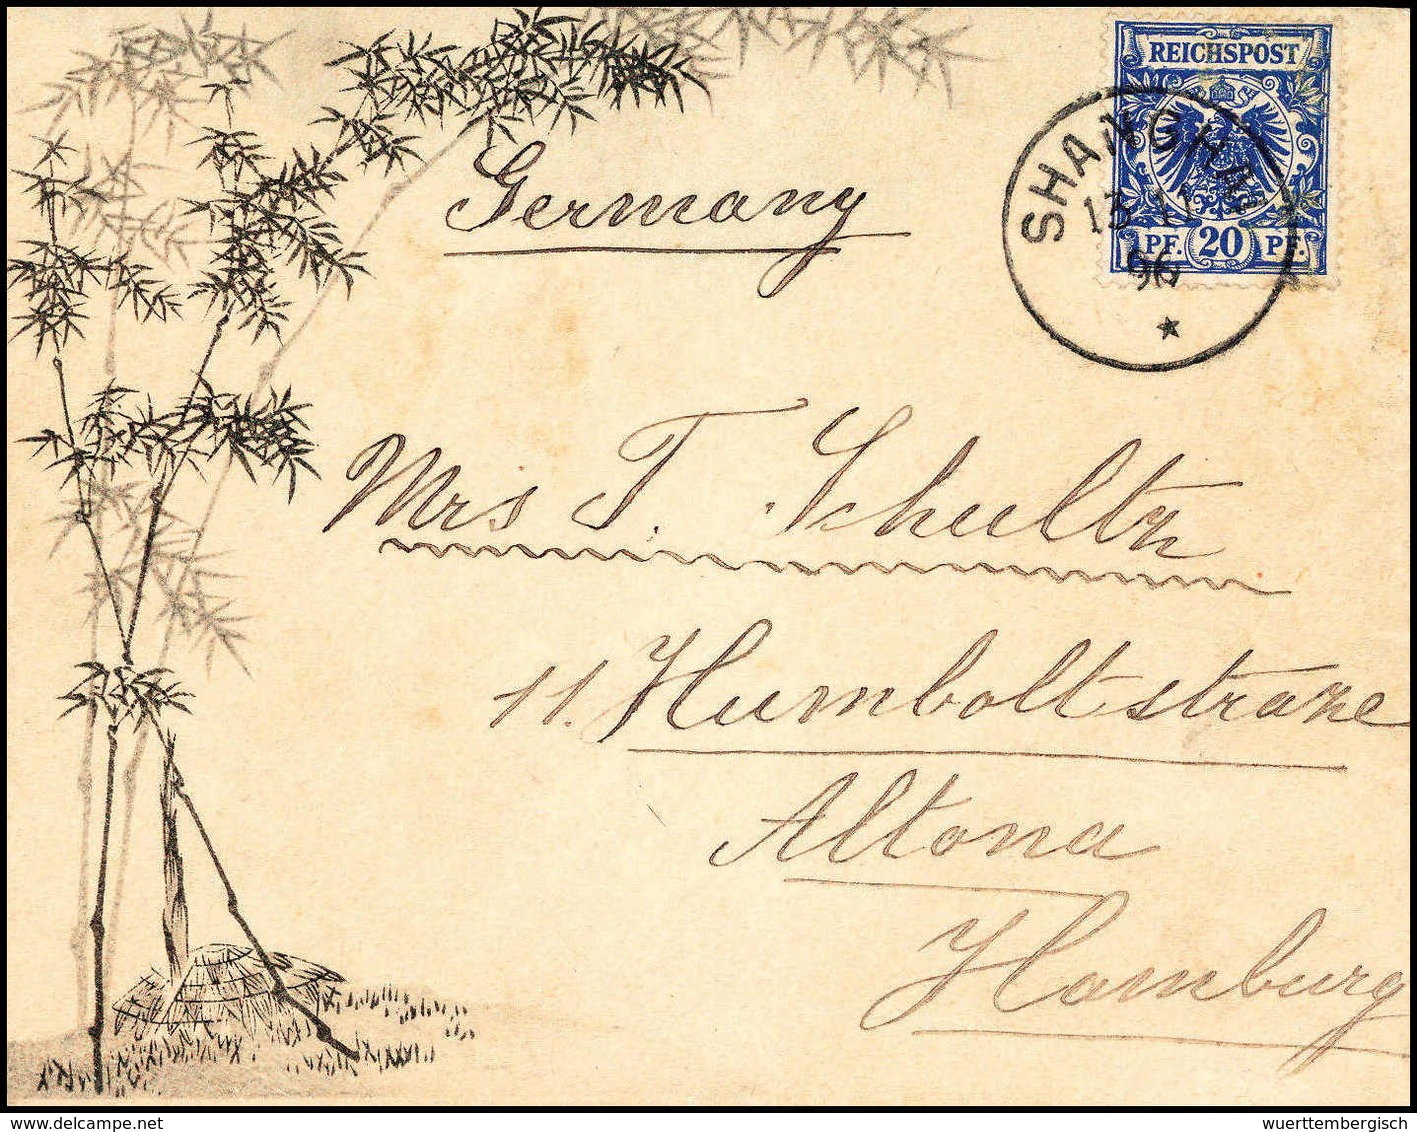 REICHSPOST
SHANGHAI
13 11
96
PF. 20 PF.
Germany
Mrs T. Schultz
11. Humboltstrasze
Altona
Hamburg
www.delcampe.net
wuerttembergisch